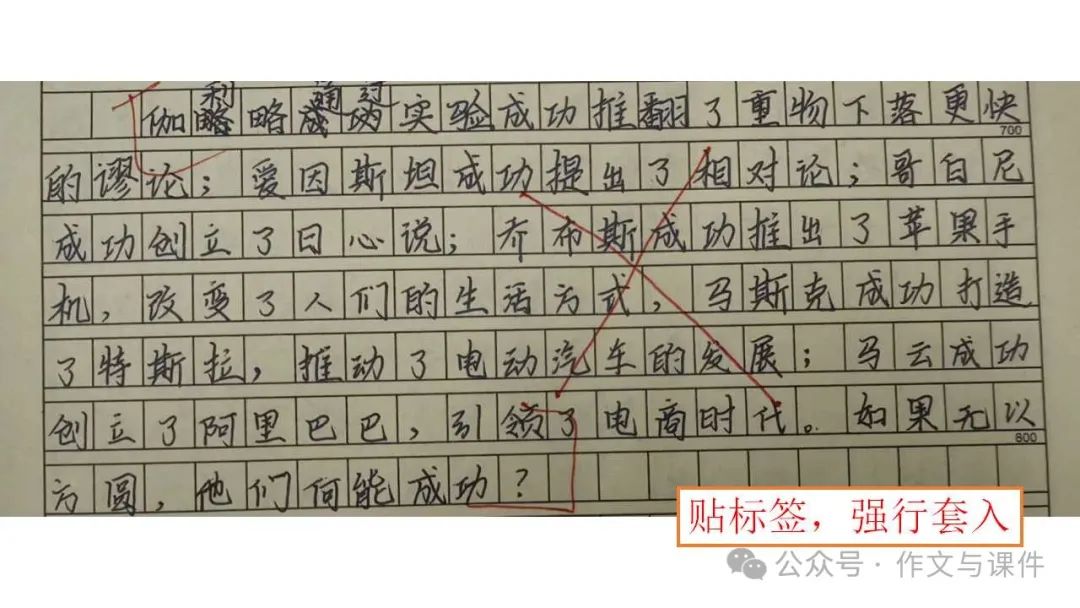 伽利略通过实验成功推翻了重物下落更快
700
的谬论；爱因斯坦成功提出了相对论；哥白尼
成功创立了日心说；乔布斯成功推出了苹果手
机，改变了人们的生活方式，马斯克成功打造
了特斯拉，推动了电动汽车的发展；马云成功
创立了阿里巴巴，引领了电商时代。如果无以
800
方圆，他们何能成功？
贴标签，强行套入
公众号·作文与课件